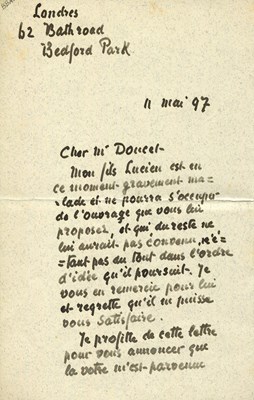 Londres
62 Bathroad
Bedford Park
11 mai 97
Cher Mr Doucet
Mon fils Lucien est en
ce moment gravement ma-
lade et ne pourra s'occuper
de l'ouvrage que vous lui
proposez, et qui, du reste ne
lui aurait pas convenu, n'é=
=tant pas du tout dans l'ordre
d'idée qu'il poursuit. Je
vous en remercie pour lui
et regrette qu'il ne puisse
vous satisfaire.
Je profite de cette lettre
pour vous annoncer que
la votre m'est parvenue